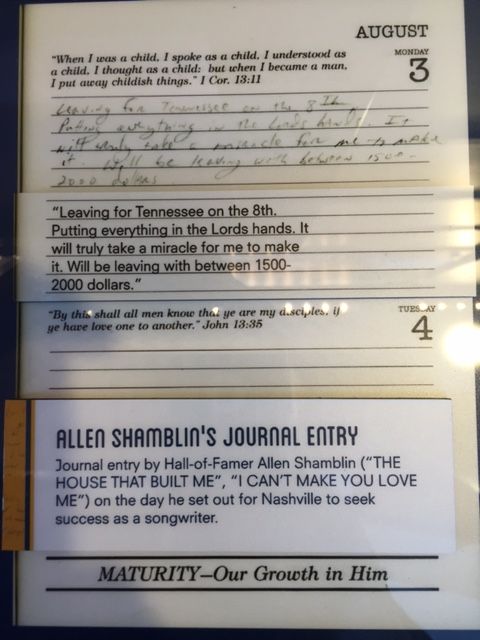 AUGUST
MONDAY
3
"When I was a child, I spoke as a child, I understood as
a child, I thought as a child: but when I became a man,
I put away childish things." I Cor. 13:11
Leaving for Tennessee on the 8th
Putting everything in the Lords hands. It
will truly take a miracle for me to make
it. Will be leaving with between 1500-
2000 dollars.
"Leaving for Tennessee on the 8th.
Putting everything in the Lords hands. It
will truly take a miracle for me to make
it. Will be leaving with between 1500-
2000 dollars."
TUESDAY
4
"By this shall all men know that ye are my disciples, if
ye have love one to another." John 13:35
ALLEN SHAMBLIN'S JOURNAL ENTRY
Journal entry by Hall-of-Famer Allen Shamblin ("THE
HOUSE THAT BUILT ME", "I CAN'T MAKE YOU LOVE
ME") on the day he set out for Nashville to seek
success as a songwriter.
MATURITY—Our Growth in Him